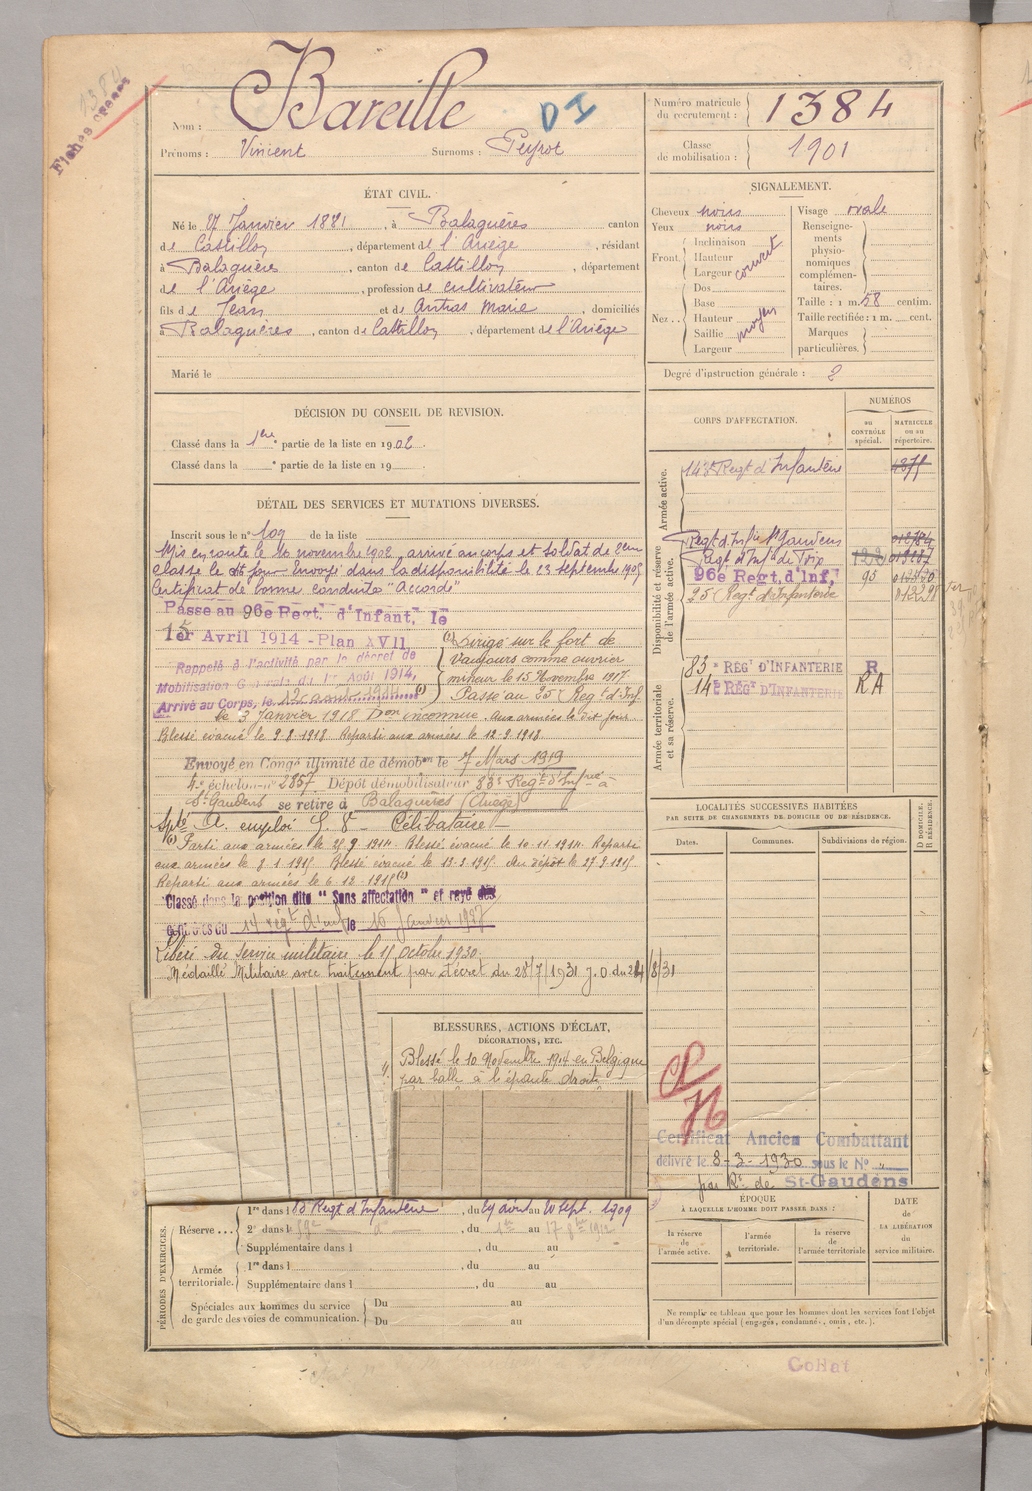 1384
Fiches
Bareille
D I
Nom :
Prénoms : Vincent Surnoms : Peyrot
Numéro matricule du recrutement : 1384
Classe de mobilisation : 1901
ÉTAT CIVIL.
Né le 27 Janvier 1881, à Balaguères canton
de Castillon, département de l'Ariège, résidant
à Balaguères, canton de Castillon, département
de l'Ariège, profession de cultivateur
fils de Jean et de Antras Marie, domiciliés
Balaguères, canton de Castillon, département de l'Ariège
Marié le
SIGNALEMENT.
Cheveux noirs
Yeux noirs
Front. Inclinaison
Hauteur
Largeur couvert
Nez.. Dos
Base
Hauteur
Saillie moyen
Largeur
Visage ovale
Renseignements physionomiques complémentaires.
Taille : 1 m. 58 centim.
Taille rectifiée : 1 m. cent.
Marques particulières.
Degré d'instruction générale : 2
DÉCISION DU CONSEIL DE REVISION.
Classé dans la 1ère partie de la liste en 1902.
Classé dans la e partie de la liste en 19
DÉTAIL DES SERVICES ET MUTATIONS DIVERSES.
Inscrit sous le n° 109 de la liste
Mis en route le 16 novembre 1902, arrivé au corps et soldat de 2eme
classe le dit jour. Envoyé dans la disponibilité le 23 septembre 1905
Certificat de bonne conduite "Accordé"
Passe au 96e Regt. d'Infant, le
1er Avril 1914 - Plan XVII
Rappelé à l'activité par le décret de
Mobilisation Générale du 1er Août 1914,
Arrivé au Corps, le 12 aout 1914 (1)
(2) Dirigé sur le fort de
Vaujours comme ouvrier
mineur le 15 Novembre 1917.
Passé au 25 Regt d'Inf.
le 3 Janvier 1918 Don inconnue. Aux armées le dit jour
Blessé évacué le 9.8.1918 Reparti aux armées le 12.9.1918
Envoyé en Congé illimité de démobon le 7 Mars 1919
4e échelon n° 2857 Dépôt démobilisateur 83e Regt d'Infrie à
St Gaudens se retire à Balaguères (Ariège)
emploi Célibataire
(1) Parti aux armées le 28.9.1914. Blessé évacué le 10.11.1914. Reparti
aux armées le 8.1.1915 Blessé évacué le 13.3.1915. Au dépôt le 27.9.1915
Reparti aux armées le 6.12.1915 (2)
Classé dans la position dite "Sans affectation" et rayé des
contrôles du 14 régt d'inf le 15 Janvier 1927
Libéré du service militaire le 15 Octobre 1930.
Médaillé Militaire avec traitement par décret du 28/7/1931 J.O. du 24/8/31
CORPS D'AFFECTATION.
NUMÉROS
au CONTRÔLE spécial.
MATRICULE ou au répertoire.
Armée active.
143e Regt d'Infanterie
Disponibilité et réserve de l'armée active.
Regt d'Infie St Gaudens
Regt d'Infie de Foix
96e Regt. d'Inf, 95
25 Regt d'Infanterie
Armée territoriale et sa réserve.
83e RÉGt D'INFANTERIE R
14e RÉGt D'INFANTERIE RA
LOCALITÉS SUCCESSIVES HABITÉES
PAR SUITE DE CHANGEMENTS DE DOMICILE OU DE RÉSIDENCE.
Dates.
Communes.
Subdivisions de région.
D DOMICILE.
R RÉSIDENCE.
BLESSURES, ACTIONS D'ÉCLAT,
DÉCORATIONS, ETC.
Blessé le 10 Novembre 1914 en Belgique
par balle à l'épaule droite
Certificat Ancien Combattant
délivré le 8-3-1930 sous le N° "
par St-Gaudens
PÉRIODES D'EXERCICES.
Réserve... 1re dans l 83 Regt d'Infanterie, du 29 août au 20 Sept. 1909
2e dans l d°, du 1er au 17 8bre 1912
Supplémentaire dans l , du au
Armée territoriale. 1re dans l , du au
Supplémentaire dans l , du au
Spéciales aux hommes du service de garde des voies de communication. Du au
Du au
ÉPOQUE
À LAQUELLE L'HOMME DOIT PASSER DANS :
la réserve de l'armée active.
l'armée territoriale.
la réserve de l'armée territoriale
DATE de LA LIBÉRATION du service militaire.
Ne remplir ce tableau que pour les hommes dont les services font l'objet
d'un décompte spécial (engagés, condamnés, omis, etc.).
Collat